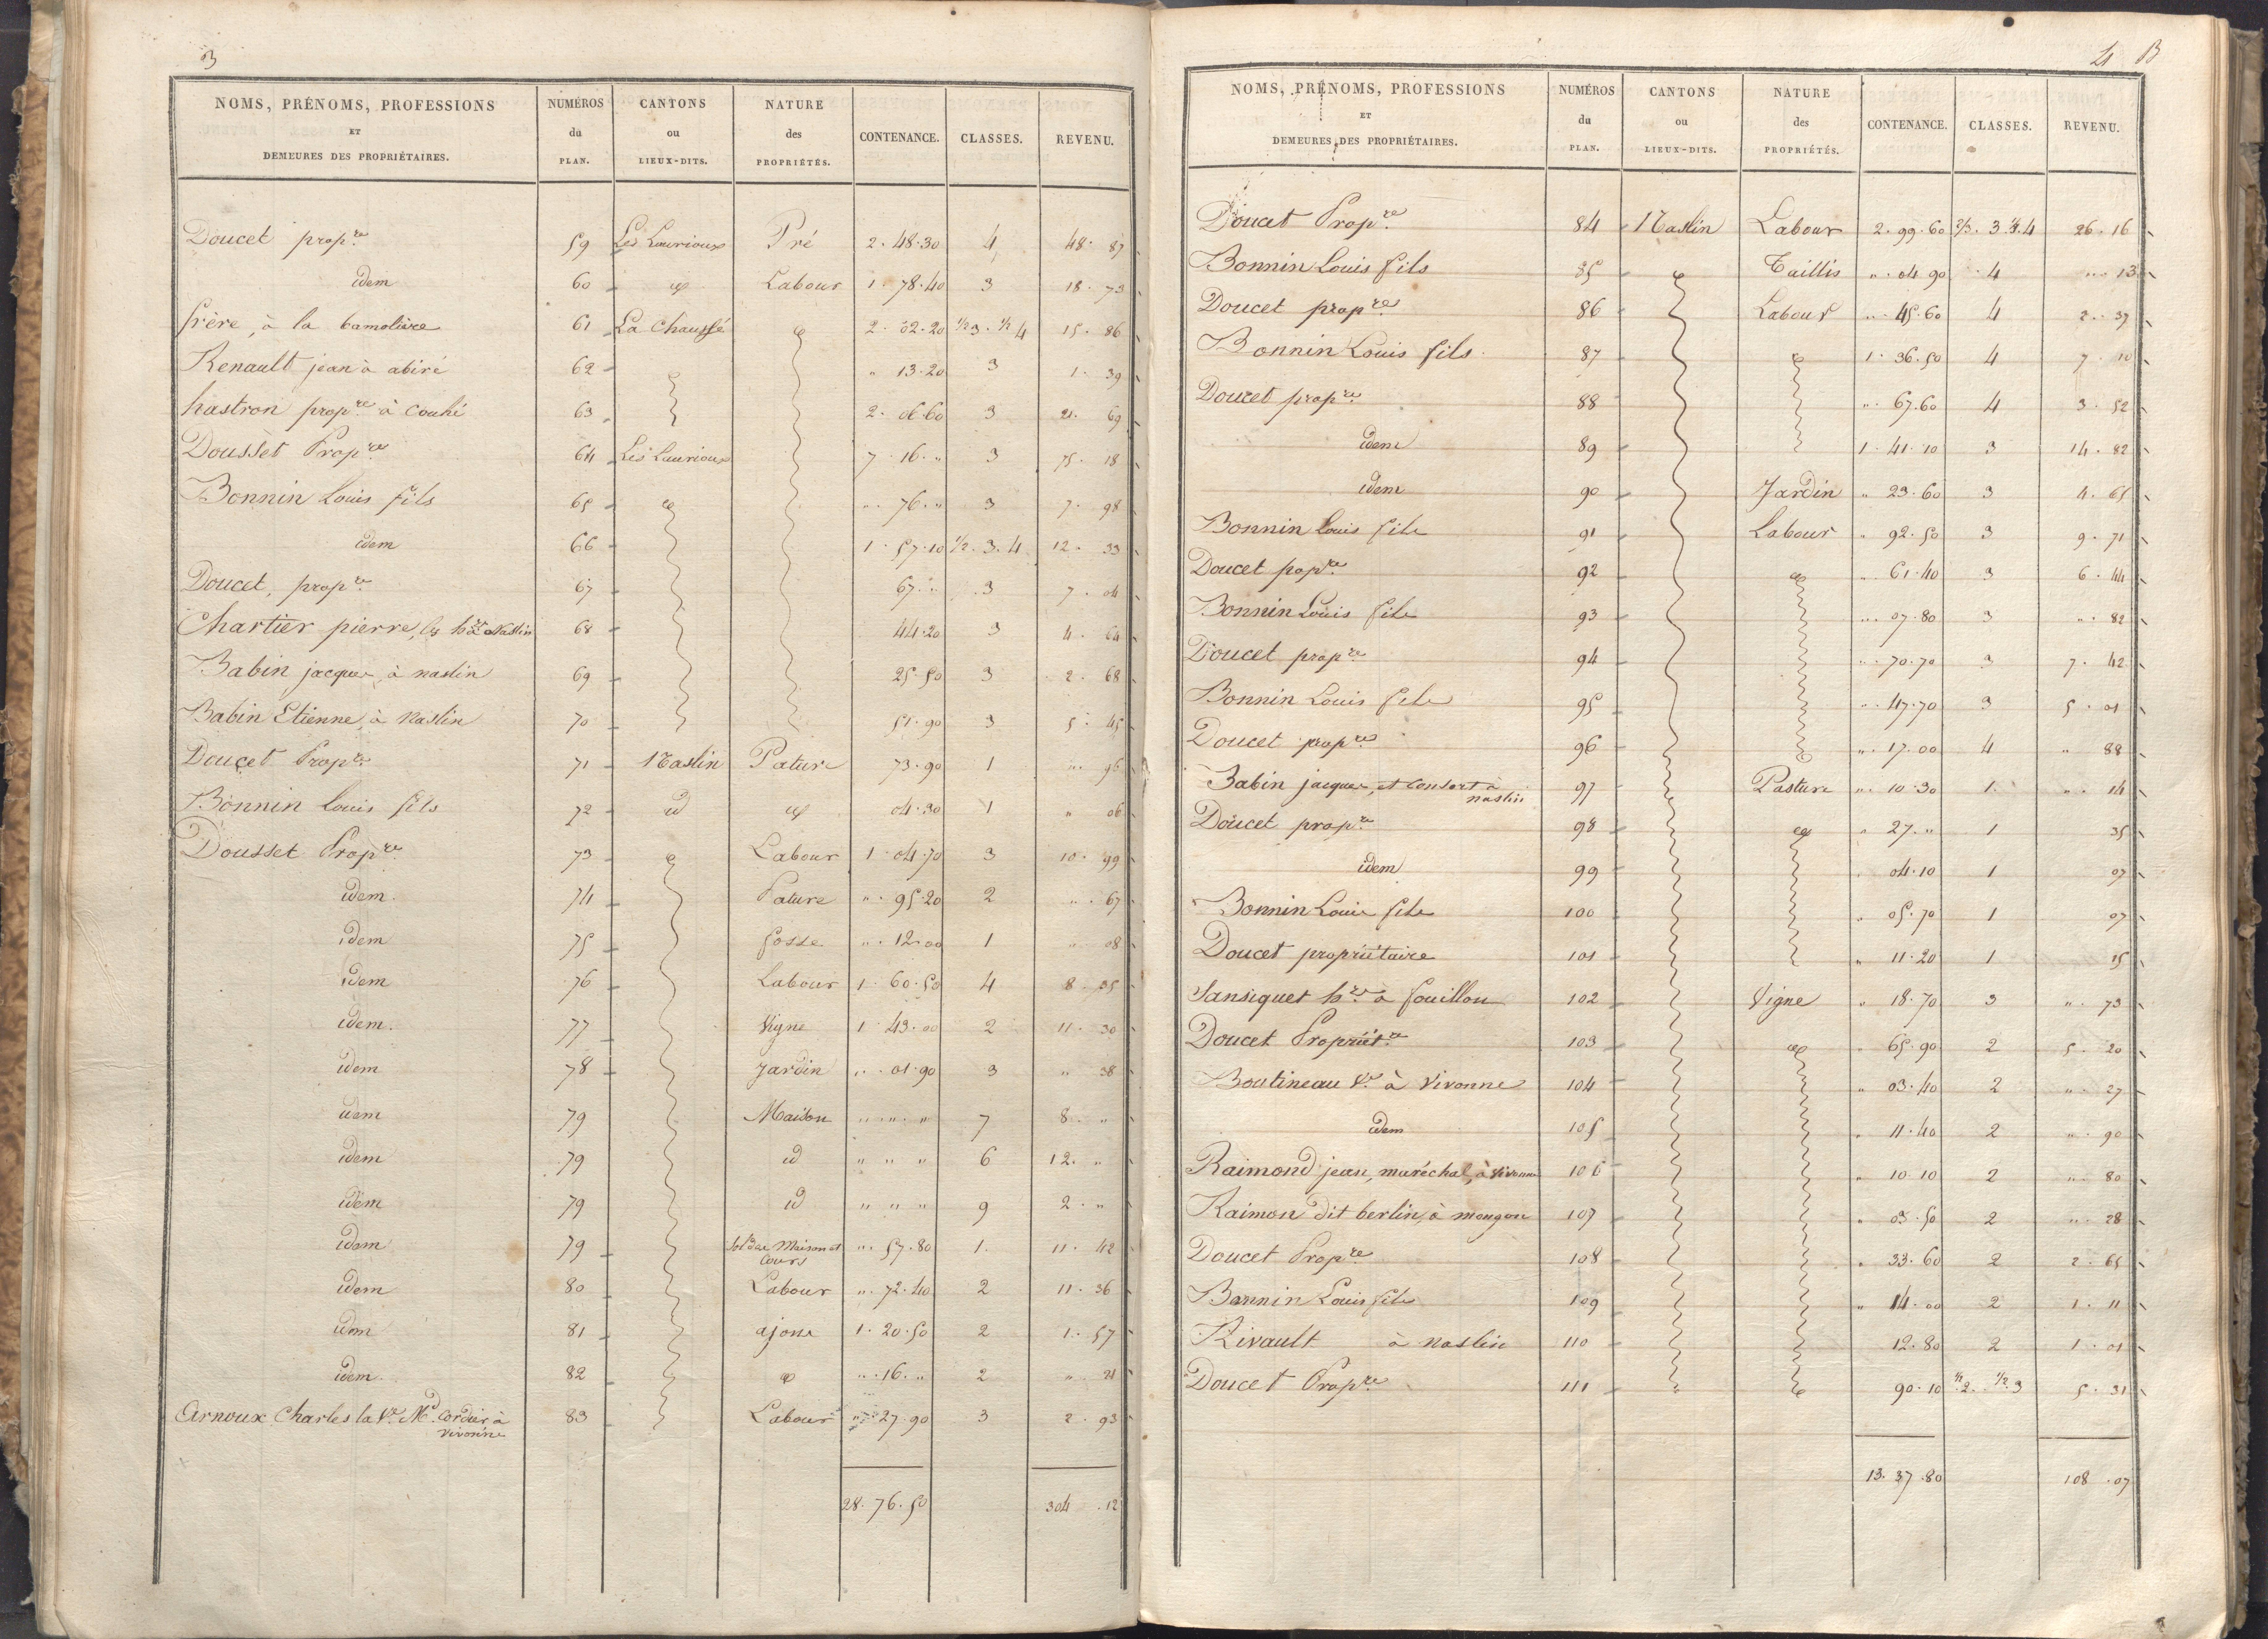 3
NOMS, PRÉNOMS, PROFESSIONS ET DEMEURES DES PROPRIÉTAIRES. NUMÉROS du PLAN. CANTONS ou LIEUX-DITS. NATURE des PROPRIÉTÉS. CONTENANCE. CLASSES. REVENU.
Doucet prop.re 59 Les Laurioux Pré 2. 48. 30 4 48. 87
idem 60 id Labour 1. 78. 40 3 18. 73
frère, à la 61 La Chaussé id 2. 02. 20 1/2 3. 1/2 4 15. 86
Renault jean à abiré 62 " 13. 20 3 1. 39
hastron prop.re à Couhé 63 2. 06. 60 3 21. 69
Dousset Prop.re 64 Les Laurioux 7. 16. " 3 75. 18
Bonnin Louis fils 65 id ". 76. " 3 7. 98
idem 66 1. 57. 10 1/2. 3. 4 12. 33
Doucet, prop.re 67 67. " 3 7. 04
Chartier pierre, les h.ers à Naslin 68 44. 20 3 4. 64
Babin jacques, à naslin 69 25. 50 3 2. 68
Babin Etienne, à Naslin 70 51. 90 3 5. 45
Doucet Prop.re 71 Naslin Pature 73. 90 1 ". 96
Bonnin Louis fils 72 id id 04. 30 1 " 06
Dousset Prop.re 73 id Labour 1. 04. 70 3 10. 99
idem. 74 Pature ". 95. 20 2 ". 67
idem 75 fosse ". 12. 00 1 " 08
idem 76 Labour 1. 60. 50 4 8. 35
idem. 77 Vigne 1. 43. 00 2 11. 30
idem 78 Jardin ". 01. 90 3 " 38
idem 79 Maison " " " 7 8. "
idem 79 id " " " 6 12. "
idem 79 id " " " 9 2. "
idem 79 Sol des Maison et Cours ". 57. 80 1. 11. 42
idem 80 Labour ". 72. 40 2 11. 36
idem 81 ajonc 1. 20. 50 2 1. 57
idem. 82 id ". 16. " 2 ". 21
Arnoux Charles la V.e M.d Cordier à Vivonne 83 Labour " 27. 90 3 2. 93
28. 76. 50 304. 12
4 B
NOMS, PRÉNOMS, PROFESSIONS ET DEMEURES DES PROPRIÉTAIRES. NUMÉROS du PLAN. CANTONS ou LIEUX-DITS. NATURE des PROPRIÉTÉS. CONTENANCE. CLASSES. REVENU.
Doucet Prop.re 84 Naslin Labour 2. 99. 60 2/3. 3 1/3. 4 26. 16
Bonnin Louis fils 85 id Taillis ". 04. 90 4 ". 13
Doucet prop.re 86 Labour ". 45. 60 4 2. 37
Bonnin Louis fils 87 id 1. 36. 50 4 7. 10
Doucet prop.re 88 ". 67. 60 4 3. 52
idem 89 1. 41. 10 3 14. 82
idem 90 Jardin " 23. 60 3 4. 65
Bonnin Louis fils 91 Labour " 92. 50 3 9. 71
Doucet prop.re 92 id ". 61. 40 3 6. 44
Bonnin Louis fils 93 ". 07. 80 3 ". 82
Doucet prop.re 94 ". 70. 70 3 7. 42
Bonnin Louis fils 95 ". 47. 70 3 5. 01
Doucet prop.re 96 ". 17. 00 4 " 88
Babin jacques, et Consort à naslin 97 Pasture ". 10. 30 1. ". 14
Doucet prop.re 98 id " 27. " 1 35
idem 99 04. 10 1 07
Bonnin Louis fils 100 " 05. 70 1 07
Doucet propriétaire 101 " 11. 20 1 15
Sansiquet h.re à fouillou 102 Vigne " 18. 70 3 ". 73
Doucet Propriét.re 103 id 65. 90 2 5. 20
Boutineau V.e à Vivonne 104 " 03. 40 2 ". 27
idem 105 " 11. 40 2 ". 90
Raimond jean, maréchal, à Vivonne 106 " 10 10 2 ". 80
Raimon dit berlin, à mougon 107 " 03. 50 2 ". 28
Doucet Prop.re 108 " 33. 60 2 2. 65
Bonnin Louis fils 109 " 14. 00 2 1. 11
Rivault à Naslin 110 12. 80 2 1. 01
Doucet Prop.re 111 " id 90. 10 1/2. 2. 1/2. 3 5. 31
13. 37. 80 108. 07